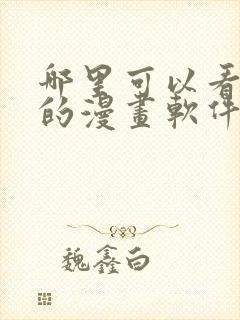 哪里可以看
的漫畫軟件
魏鑫白